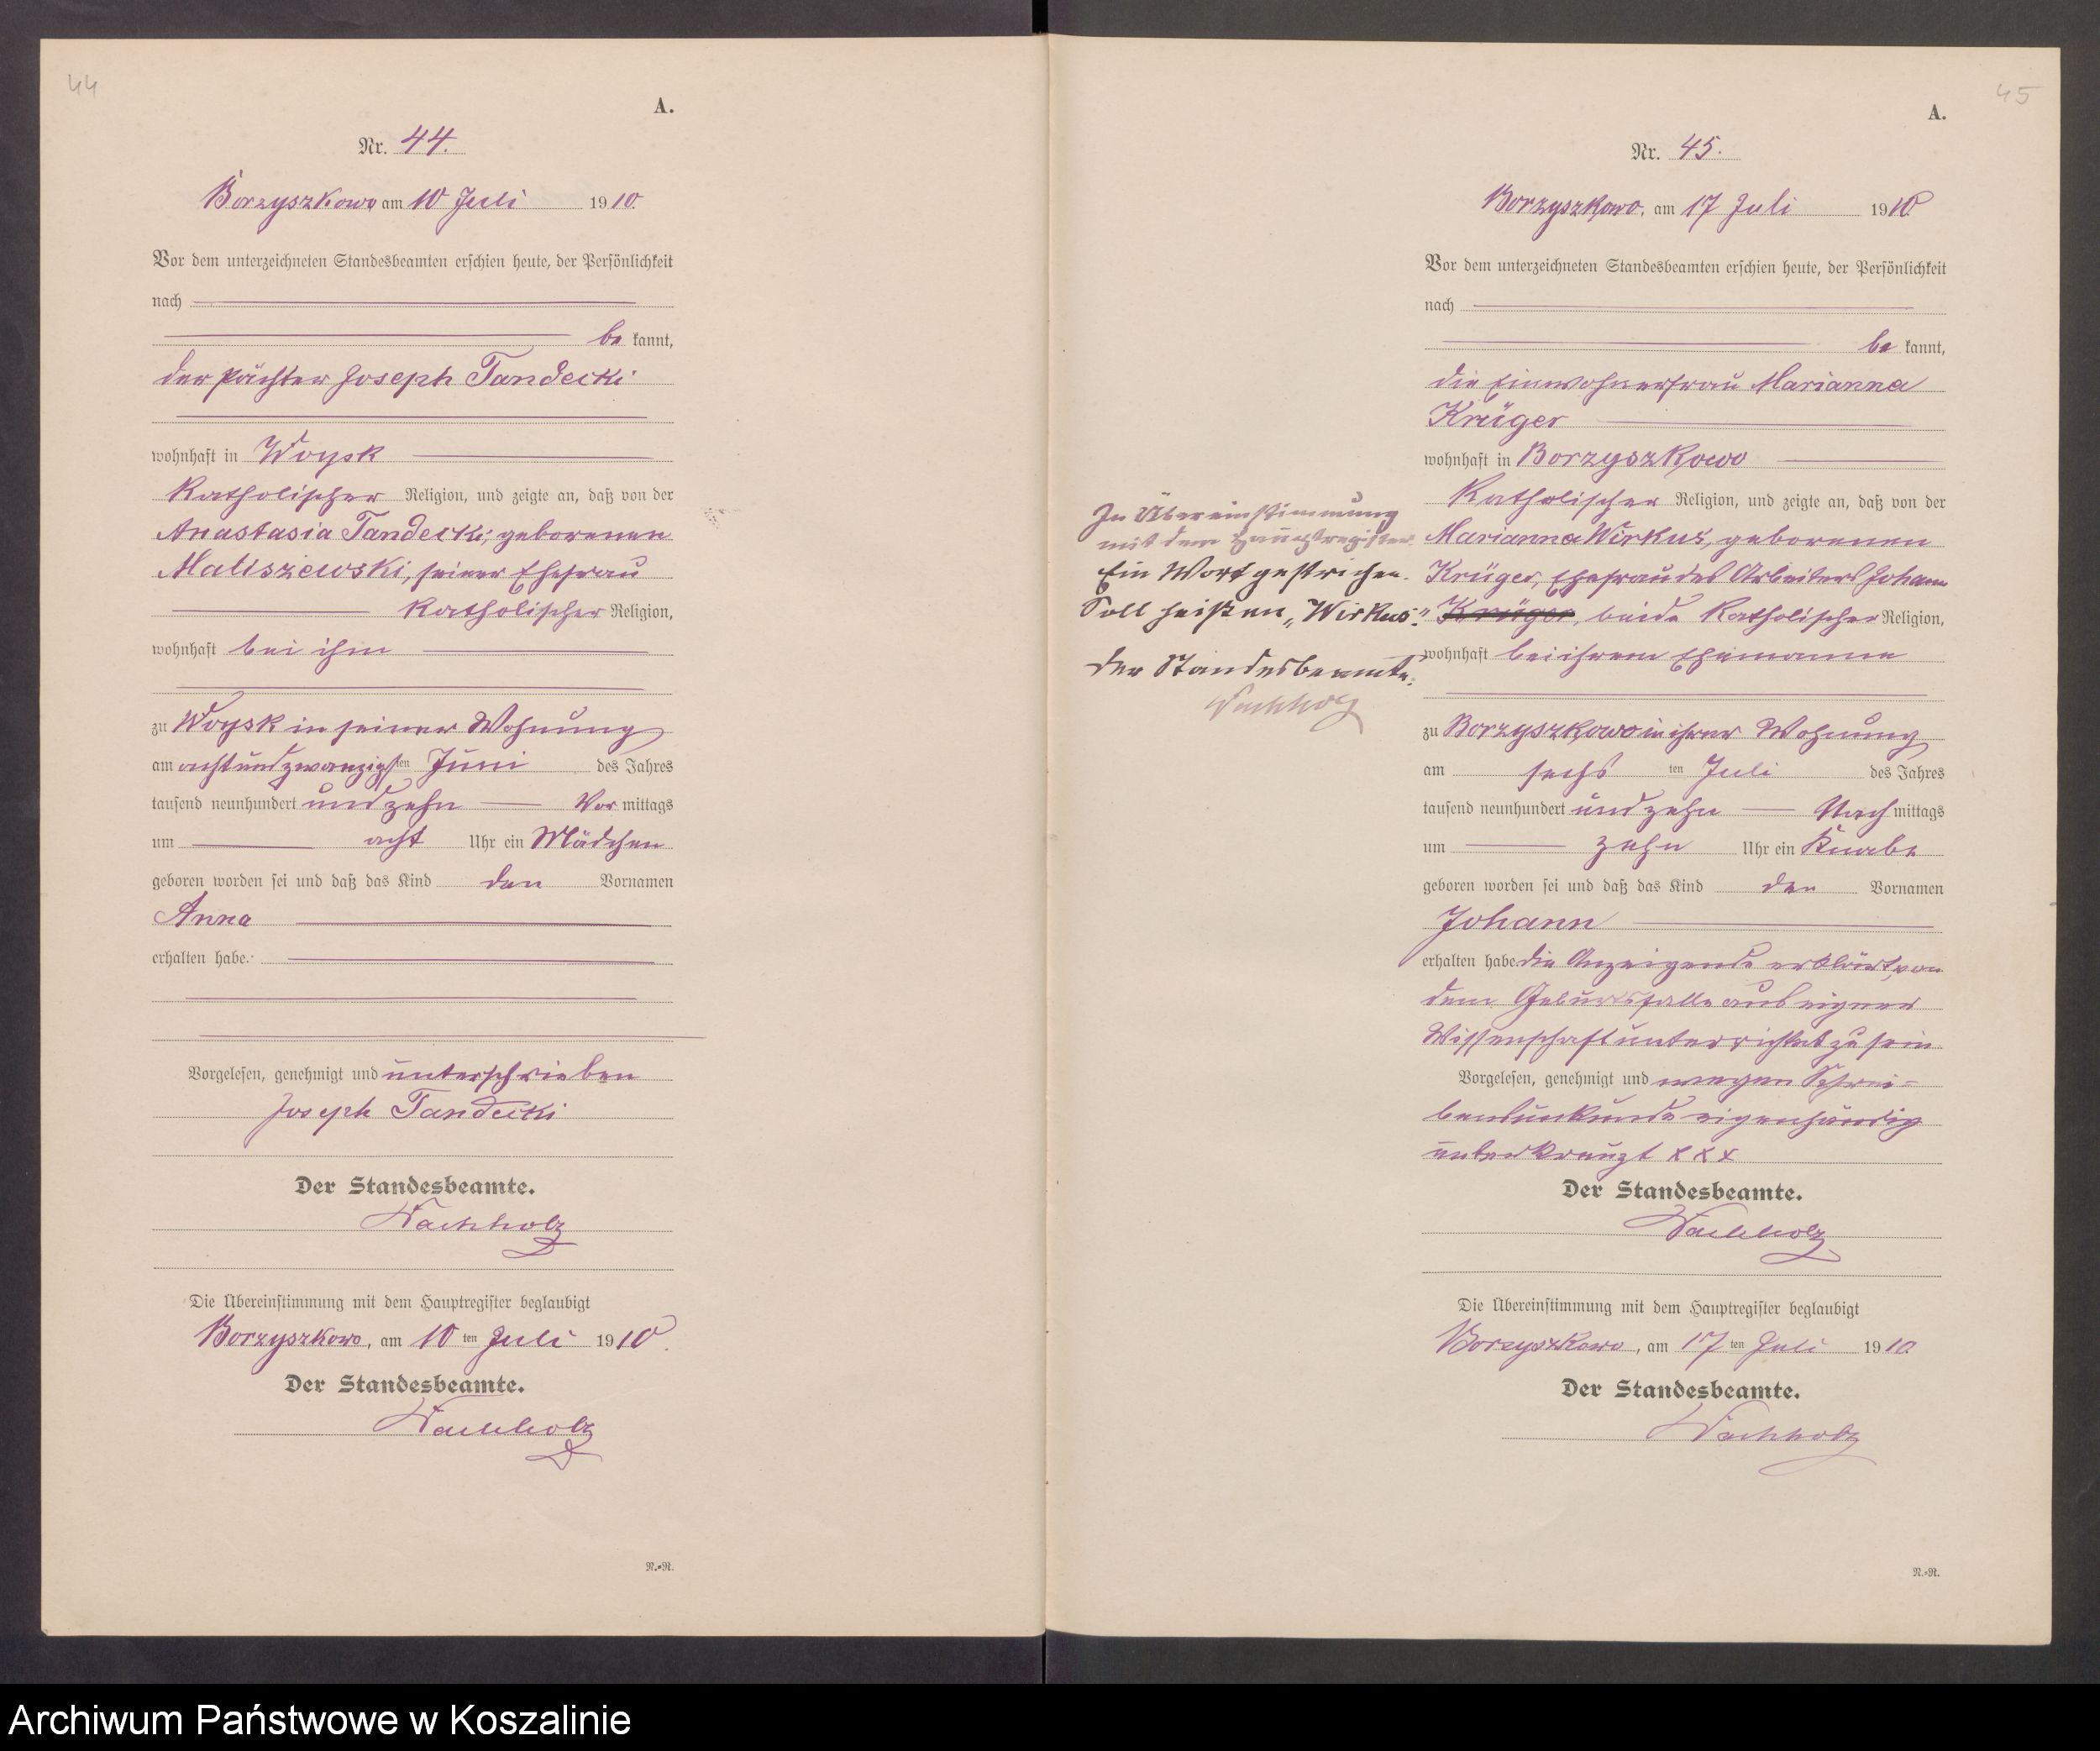 44
A.
Nr. 44.
Borzyszkowo am 10 Juli 1910.
Vor dem unterzeichneten Standesbeamten erschien heute, der Persönlichkeit
nach
be kannt,
der Pächter Joseph Tandecki
wohnhaft in Woysk
Katholischer Religion, und zeigte an, daß von der
Anastasia Tandecki, geborenen
Maliszewski, seiner Ehefrau
Katholischer Religion,
wohnhaft bei ihm
zu Woysk in seiner Wohnung
am achtundzwanzigsten Juni des Jahres
tausend neunhundert und zehn Vor mittags
um acht Uhr ein Mädchen
geboren worden sei und daß das Kind den Vornamen
Anna
erhalten habe.
Vorgelesen, genehmigt und unterschrieben
Joseph Tandecki
Der Standesbeamte.
Wachholz
Die Übereinstimmung mit dem Hauptregister beglaubigt
Borzyszkowo, am 10 ten Juli 1910.
Der Standesbeamte.
Wachholz
N.=R.
45
A.
Nr. 45.
Borzyszkowo, am 17 Juli 1910
Vor dem unterzeichneten Standesbeamten erschien heute, der Persönlichkeit
nach
be kannt,
die Einwohnerfrau Marianna
Krüger
wohnhaft in Borzyszkowo
Katholischer Religion, und zeigte an, daß von der
Marianna Wirkus, geborenen
Krüger, Ehefrau des Arbeiters Johann
Krüger, beide Katholischer Religion,
wohnhaft bei ihrem Ehemanne
zu Borzyszkowo in ihrer Wohnung
am sechs ten Juli des Jahres
tausend neunhundert und zehn Nach mittags
um zehn Uhr ein Knabe
geboren worden sei und daß das Kind den Vornamen
Johann
erhalten habe. die Anzeigende erklärt, von
dem Geburtsfalle aus eigner
Wissenschaft unterrichtet zu sein
Vorgelesen, genehmigt und wegen Schrei-
bensunkunde eigenhändig
unterkreuzt x x x
Der Standesbeamte.
Wachholz
Die Übereinstimmung mit dem Hauptregister beglaubigt
Borzyszkowo, am 17 ten Juli 1910.
Der Standesbeamte.
Wachholz
N.=R.
In Übereinstimmung
mit dem Hauptregister
Ein Wort gestrichen.
Soll heißen „Wirkus".
Der Standesbeamte.
Wachholz
Archiwum Państwowe w Koszalinie